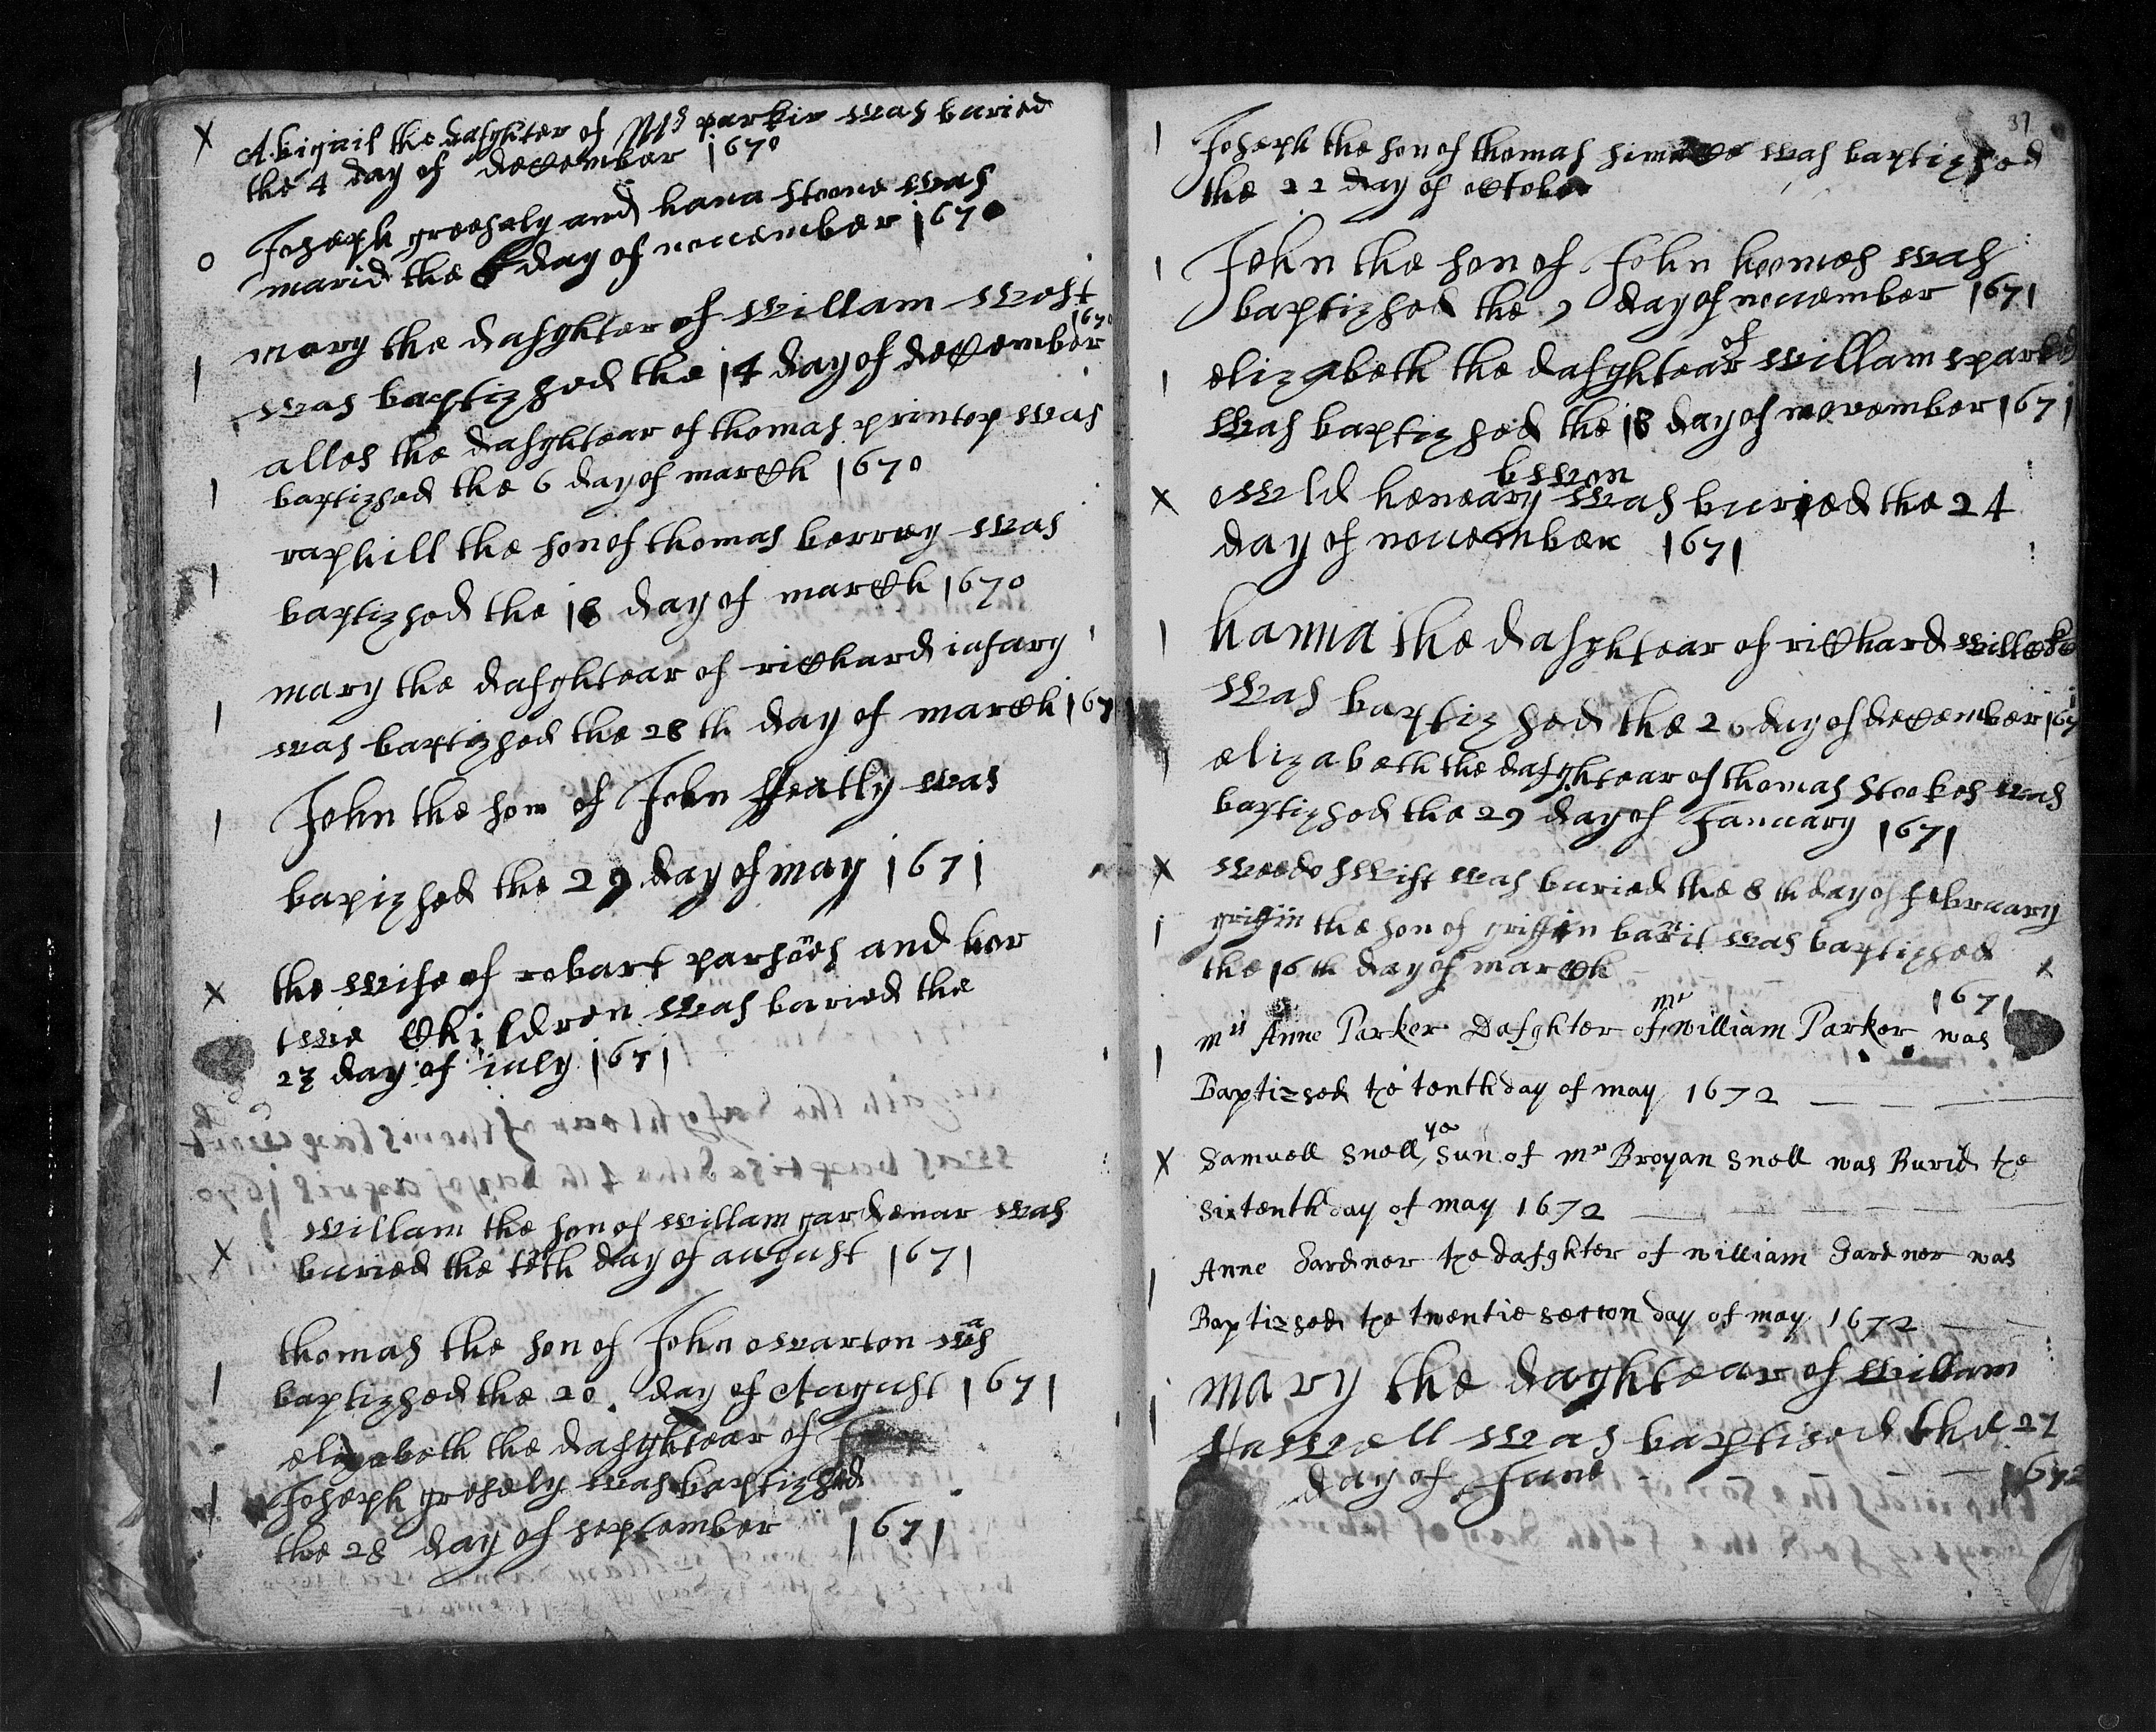 Abigail the dafghter of Mrs parkir was buried
the 4 day of december 1670
Joseph greesely and hana stoone was
marid the 6 day of nouember 1670
mary the dafghter of willam west
was baptizhed the 14 day of december 1670
alles the dafghtear of thomas printop was
baptizhed the 6 day of march 1670
raphill the son of thomas berrey was
baptizhed the 18 day of march 1670
mary the dafghtear of richard iafary
was baptizhed the 28 th day of march 167
John the son of John heatly was
bapizhed the 29 day of may 1671
the wife of robart parsones and her
twe children was buried the
27 day of iuly 1671
willam the son of willam gardenar was
buried the teth day of august 1671
thomas the son of John owarton was
baptizhed the 20 day of August 1671
elizabeth the dafghtear of
Joseph gresely was baptizhed
the 28 day of september 1671
37
Joseph the son of thomas was baptizhed
the 22 day of october
John the son of John hoomes was
baptizhed the 9 day of nouember 1671
elizabeth the dafghtear of willam sparkes
was baptizhed the 18 day of november 1671
owld heneary bwon was buried the 24
day of nouember 1671
hanna the dafghtear of richard
was baptizhed the 26 day of december 167
elizabeth the dafghtear of thomas stookes was
baptizhed the 29 day of January 1671
weedo swift was buried the 8 th day of february
griffin the son of griffin was baptizhed
the 16 th day of march 1671
mis Anne Parker Dafghter of mr william Parker was
Baptizsed the tenth day of may 1672
Samuell Snell ye Sun of mr Broyan Snell was Burid the
sixtenth day of may 1672
Anne Gardner the dafghter of william Gardner was
Baptizsed the twentie seccon day of may 1672
mary the daghtear of willam
haswell was baptised the 27
day of June 1672